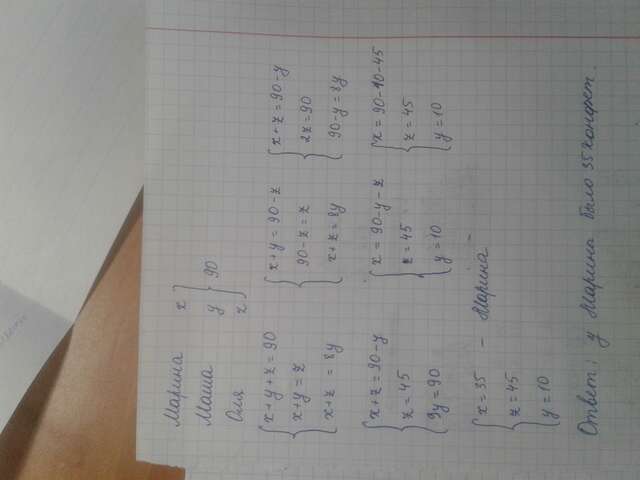 Марина x
Маша y } 90
Оля z
{ x+y+z=90
x+y=z
x+z=8y
{ x+y=90-z
90-z=z
x+z=8y
{ x+z=90-y
2z=90
90-y=8y
{ x+z=90-y
z=45
9y=90
{ x=90-y-z
z=45
y=10
{ x=90-10-45
z=45
y=10
{ x=35 - Марина
z=45
y=10
Ответ: у Марина было 35 конфет.